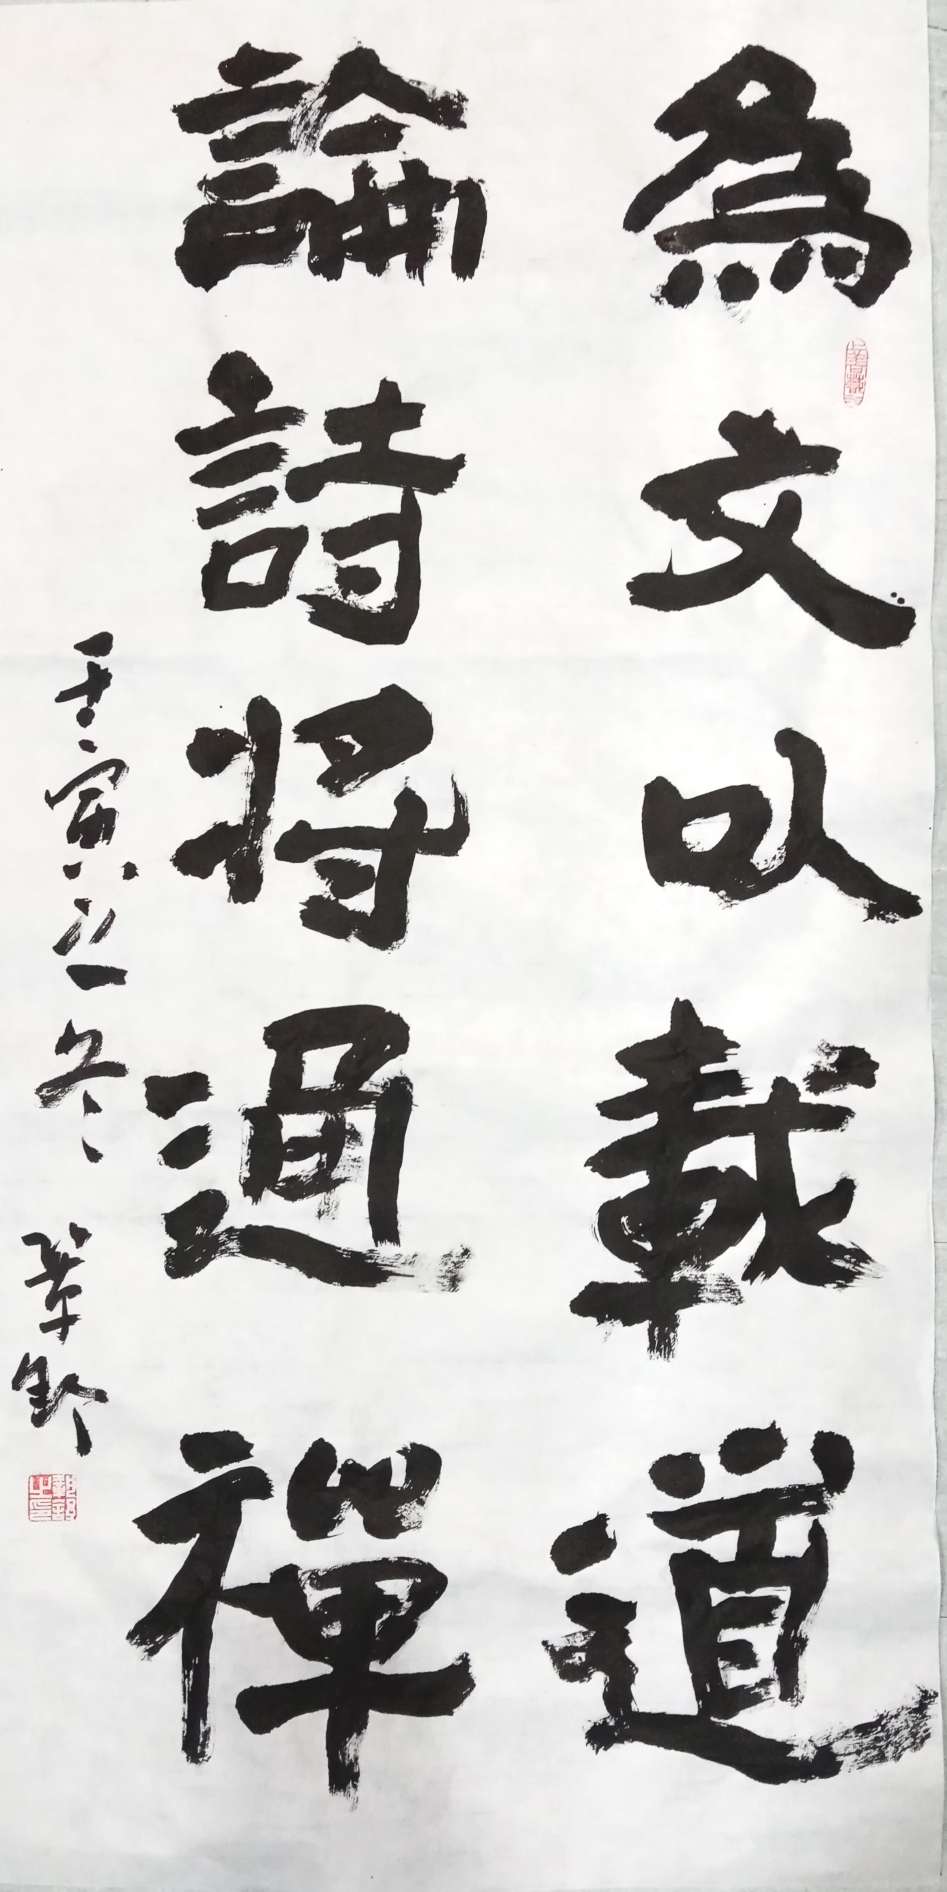 為文以載道
論詩將通禪
壬寅之冬